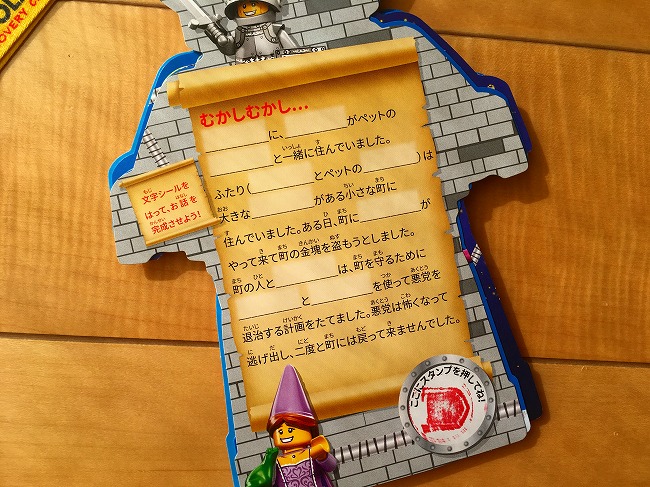 OVERY C
むかしむかし…
に、 がペットの
と一緒に住んでいました。
ふたり( とペットの )は
大きな がある小さな町に
住んでいました。ある日、町に が
やって来て町の金塊を盗もうとしました。
町の人と は、町を守るために
と を使って悪党を
退治する計画をたてました。悪党は怖くなって
逃げ出し、二度と町には戻って来ませんでした。
文字シールを
はって、お話を
完成させよう!
ここにスタンプを押してね!